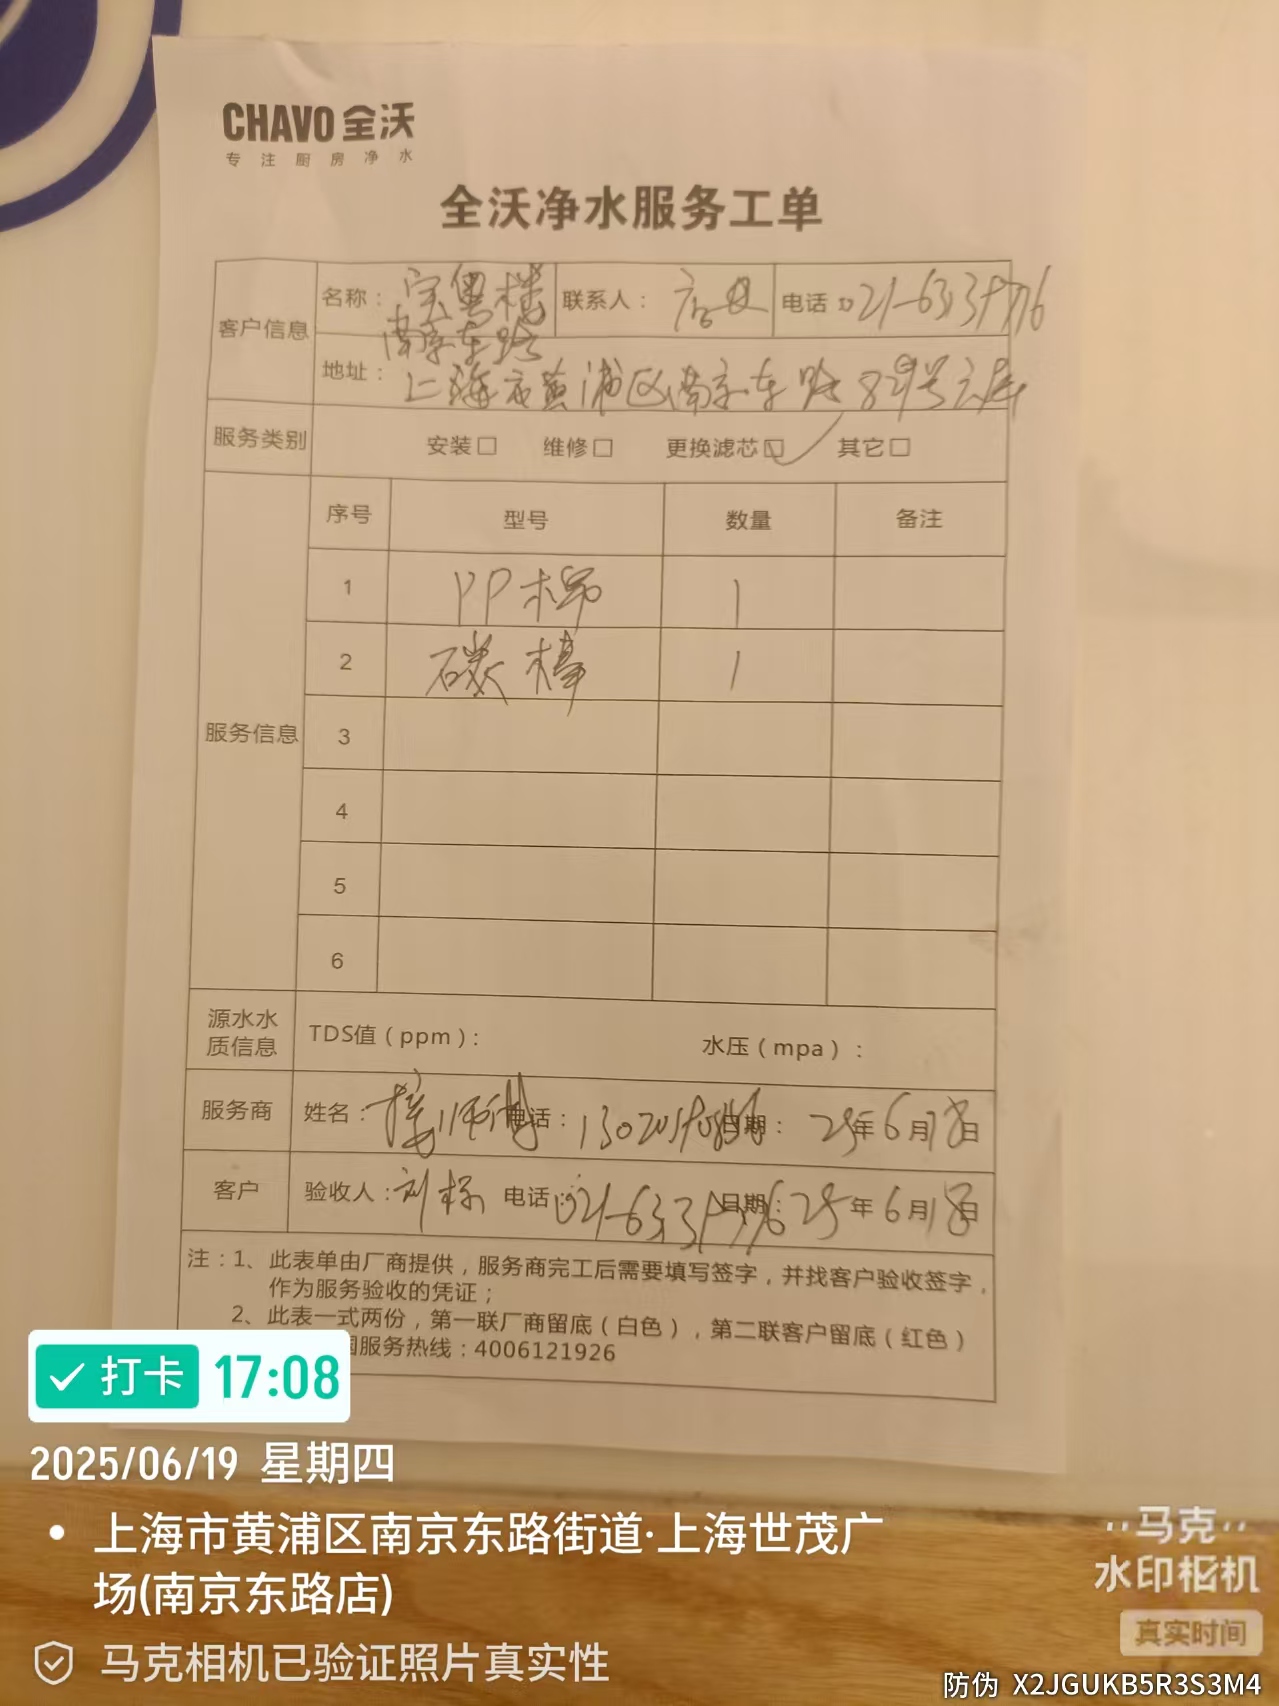 CHAVO 全沃
专注厨房净水
全沃净水服务工单
客户信息 名称: 宝粤楼 南京东路 联系人: 店长 电话: 021-63
地址: 上海市黄浦区南京东路829号
服务类别 安装□ 维修□ 更换滤芯☑ 其它□
服务信息 序号 型号 数量 备注
1 PP棉 1
2 碳棒 1
3
4
5
6
源水水质信息 TDS值(ppm): 水压(mpa):
服务商 姓名: 师傅 电话: 日期: 25年6月18日
客户 验收人: 刘 电话: 021-63 日期: 25年6月18日
注:1、此表单由厂商提供,服务商完工后需要填写签字,并找客户验收签字,
作为服务验收的凭证;
2、此表一式两份,第一联厂商留底(白色),第二联客户留底(红色)
国服务热线:4006121926
打卡 17:08
2025/06/19 星期四
上海市黄浦区南京东路街道·上海世茂广
场(南京东路店)
马克相机已验证照片真实性
马克
水印相机
真实时间
防伪 X2JGUKB5R3S3M4